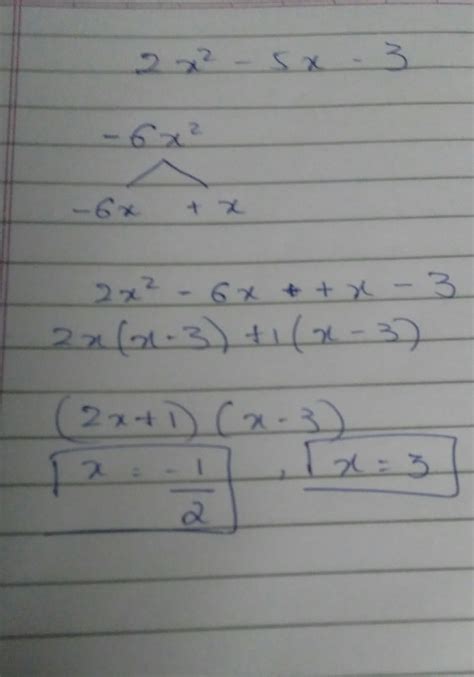 2x² - 5x - 3
-6x²
-6x + x
2x² - 6x + + x - 3
2x(x-3) + 1(x-3)
(2x+1) (x-3)
x = -1/2 , x = 3